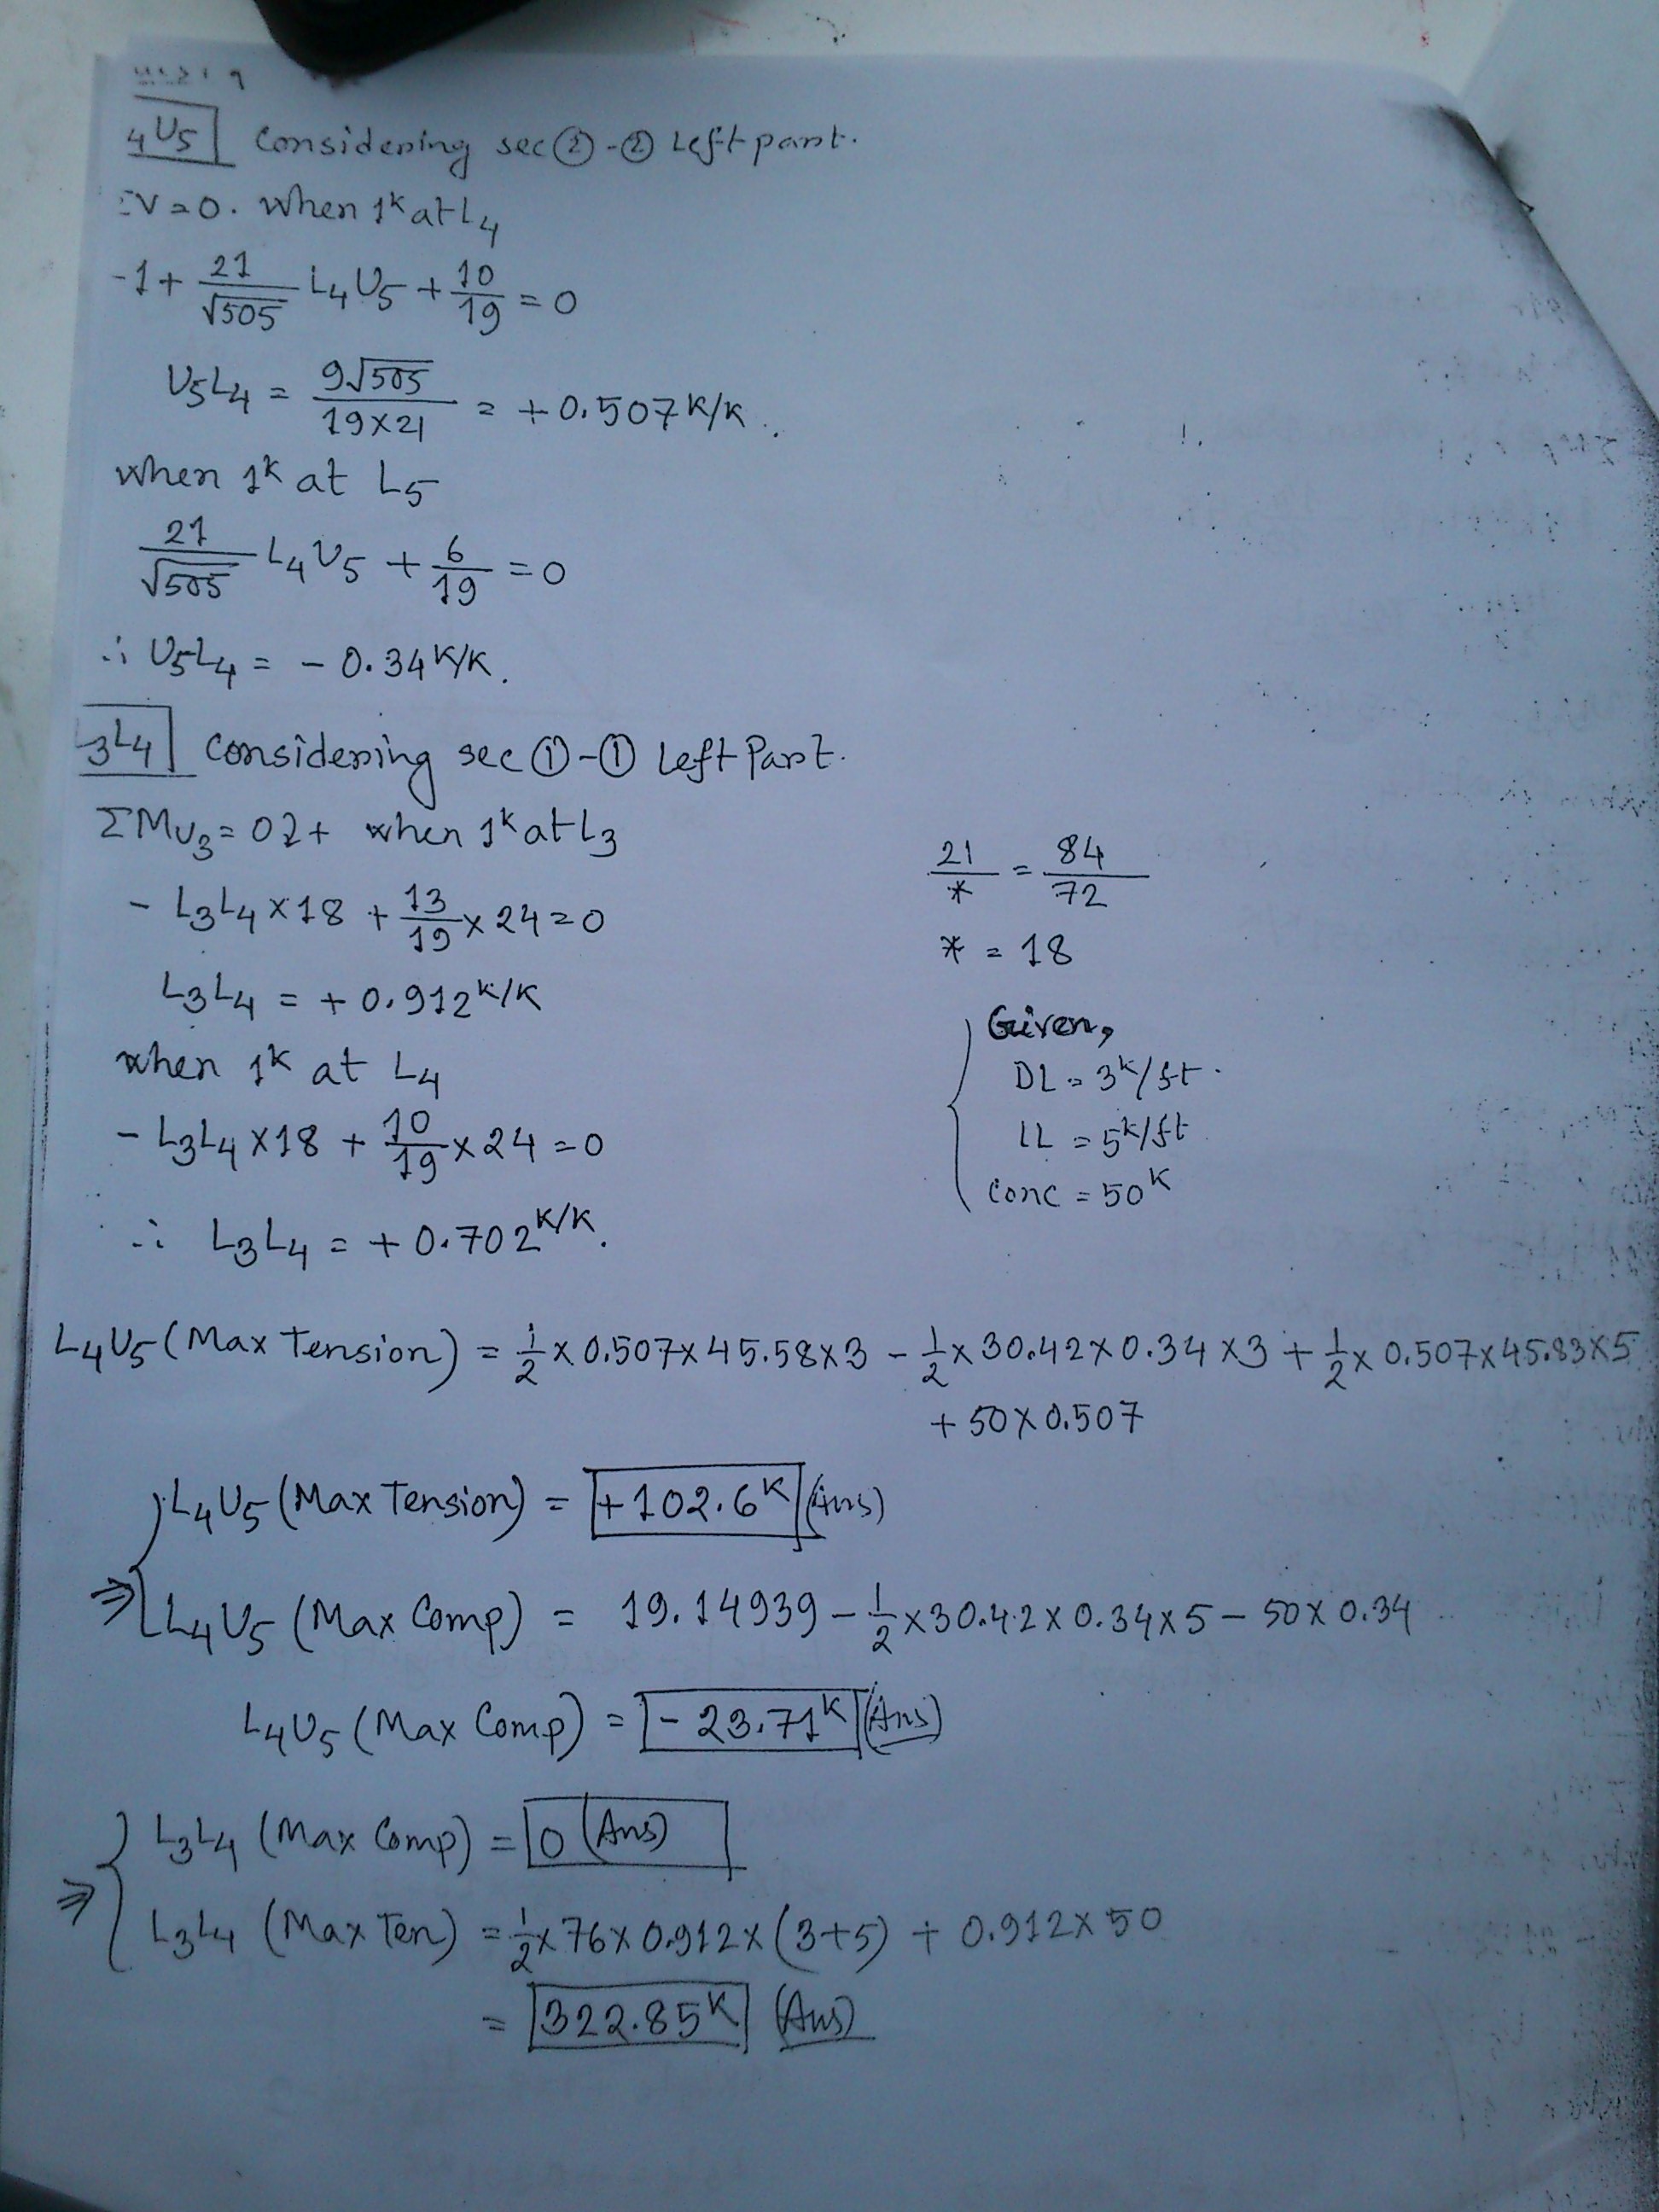 4U5 Considering sec ②-② Left part.
ΣV=0. When 1ᵏ at L4
-1 + 21/√505 L4U5 + 10/19 = 0
U5L4 = 9√505/19×21 = +0.507 K/K.
when 1ᵏ at L5
21/√505 L4U5 + 6/19 = 0
∴ U5L4 = - 0.34 K/K.
3L4 Considering sec ①-① Left Part.
ΣMU3 = 0 ⤸+ when 1ᵏ at L3
- L3L4 × 18 + 13/19 × 24 = 0
L3L4 = + 0.912 K/K
when 1ᵏ at L4
- L3L4 × 18 + 10/19 × 24 = 0
∴ L3L4 = + 0.702 K/K.
21/* = 84/72
* = 18
Given,
DL = 3ᵏ/ft.
LL = 5ᵏ/ft
Conc = 50ᴷ
L4U5 (Max Tension) = 1/2 × 0.507 × 45.58 × 3 - 1/2 × 30.42 × 0.34 × 3 + 1/2 × 0.507 × 45.83 × 5
+ 50 × 0.507
L4U5 (Max Tension) = +102.6ᴷ (Ans)
⇒ L4U5 (Max Comp) = 19.14939 - 1/2 × 30.42 × 0.34 × 5 - 50 × 0.34
L4U5 (Max Comp) = - 23.71ᴷ (Ans)
L3L4 (Max Comp) = 0 (Ans)
⇒ L3L4 (Max Ten) = 1/2 × 76 × 0.912 × (3+5) + 0.912 × 50
= 322.85ᴷ (Ans)